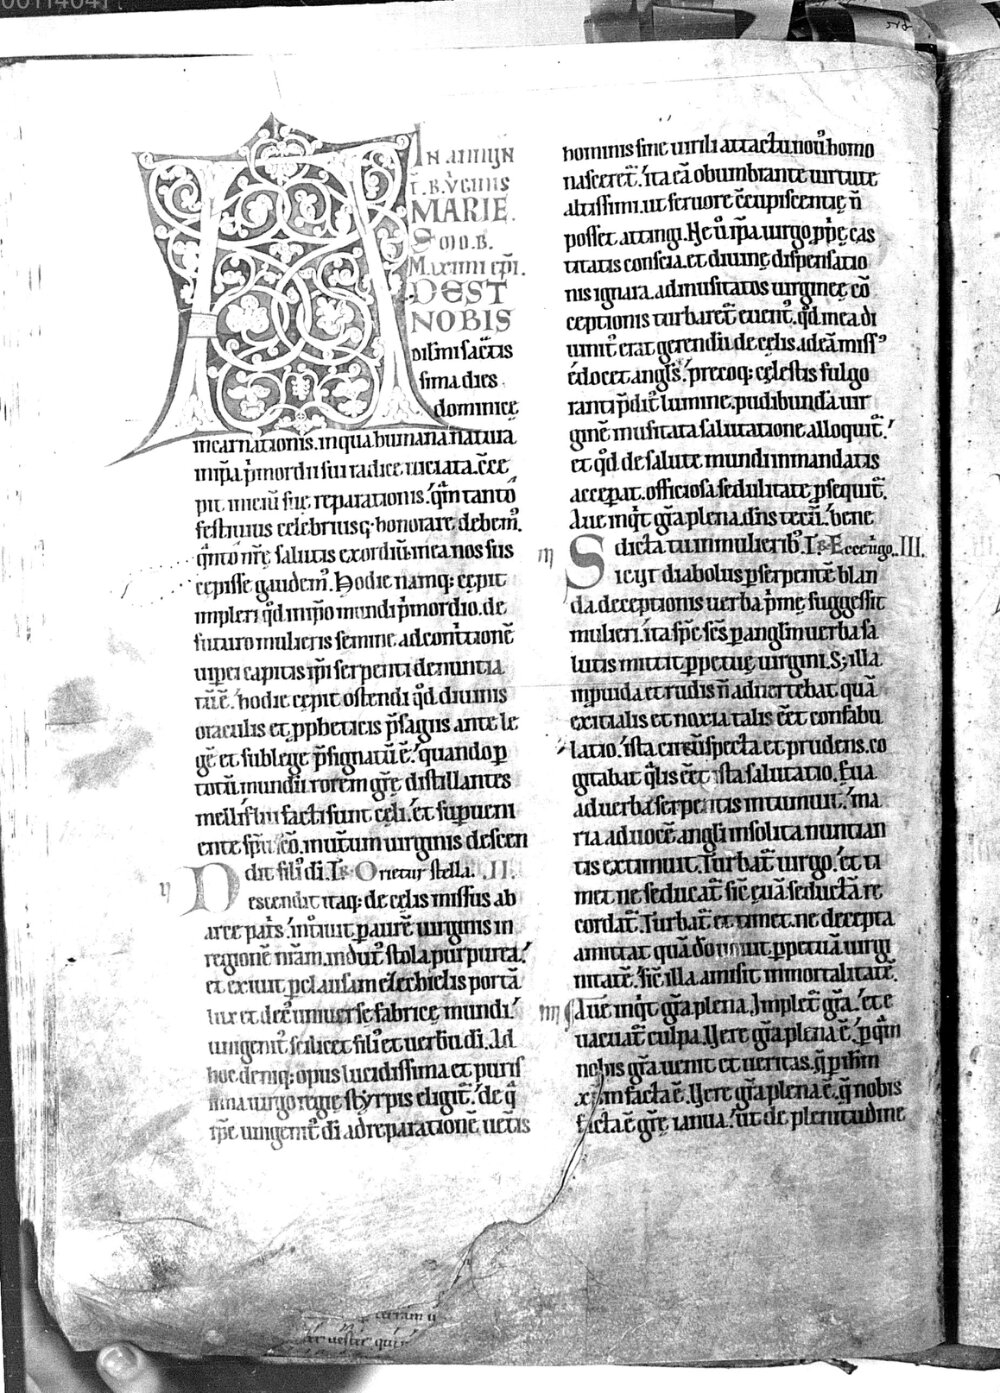 IN ANNUN
MARIE.
Maximi epi.
DEST
NOBIS
dilmi sactis
sima dies
dominicę
incarnationis. in qua humana natura
in ipa pmordii sui radice uiciata. cęe
pit iniciū suę reparationis. qm tanto
festiuius celebriusq; honorare debem᷒.
qnto nrę salutis exordiū. in ea nos sus
cepisse gaudem᷒. Hodie namq; cępit
impleri qd in ipso mundi pmordio. de
futuro mulieris semine. ad contritionē
uiperei capitis ipi serpenti denuntia
tū ē. hodie cępit ostendi qd diuinis
oraculis et ppheticis psagiis ante le
gē et sub lege psignatū ē. quando p
totū mundū rorem grę distillantes
melliflui facti sunt cęli. et supueni
ente spu sco. in utum uirginis descen
dit fili᷒ di. Orietur stella. II.
Descendit itaq; de cęlis missus ab
arce patris. intuiit p aurē uirginis in
regionē nram. indut᷒ stola purpurea.
et exiuit p clausam ezechielis portā
lux et dec᷒ uniuersę fabricę mundi.
unigenit᷒ scilicet fili᷒ et uerbū di. Ad
hoc deniq; opus lucidissima et puris
sima uirgo regię styrpis eligit᷒. de q
ipe unigenit᷒ di ad reparationē uetis
hominis sine uirili attactu nou᷒ homo
nasceret᷒. ita eā obumbrante uirtute
altissimi. ut feruore ccupiscentię n
posset attingi. Hęc u ipa uirgo pprię cas
titatis conscia. et diuinę dispensatio
nis ignara. ad inusitatos uirgineę co
ceptionis turbaret᷒ euent᷒. qd mea di
uinit᷒ erat gerendū. de cęlis ad eā miss᷒
edocet angls. precoq; cęlestis fulgo
ranti pdit᷒ lumine. pudibundā uir
ginē inusitata salutatione alloquit᷒.
et qd de salute mundi in mandatis
acceperat. officiosa sedulitate psequit᷒.
Aue inqt gra plena. dns tecū. bene
dicta tu in mulierib᷒. Ecce virgo. III.
Sicut diabolus p serpentē blan
da deceptionis uerba pmę suggessit
mulieri. ita spc scs p anglm uerba sa
lutis mittit ppetuę uirgini. S; illa
inpuida et rudis n aduertebat quā
exitialis et noxia talis eet confabu
latio. ista circūspecta et prudens. co
gitabat qlis eet ista salutatio. Eua
ad uerba serpentis intumuit. ma
ria ad uocē angli insolita nuntian
tis extimuit. Turbat᷒ uirgo. et ti
met ne seducat᷒ sic euā seductā re
cordat᷒. Turbat᷒ et timet. ne decepta
amittat quā domino uouit. ppetuā uirgi
nitatē. sic illa amisit inmortalitatē.
Aue inqt gra plena. Implet᷒ gra. et e
uacuat᷒ culpa. Uere gra plena ē. p qm
nobis gra uenit et ueritas. q p ihm
xpm facta ē. Uere gra plena ē. q nobis
facta ē grę ianua. ut de plenitudine